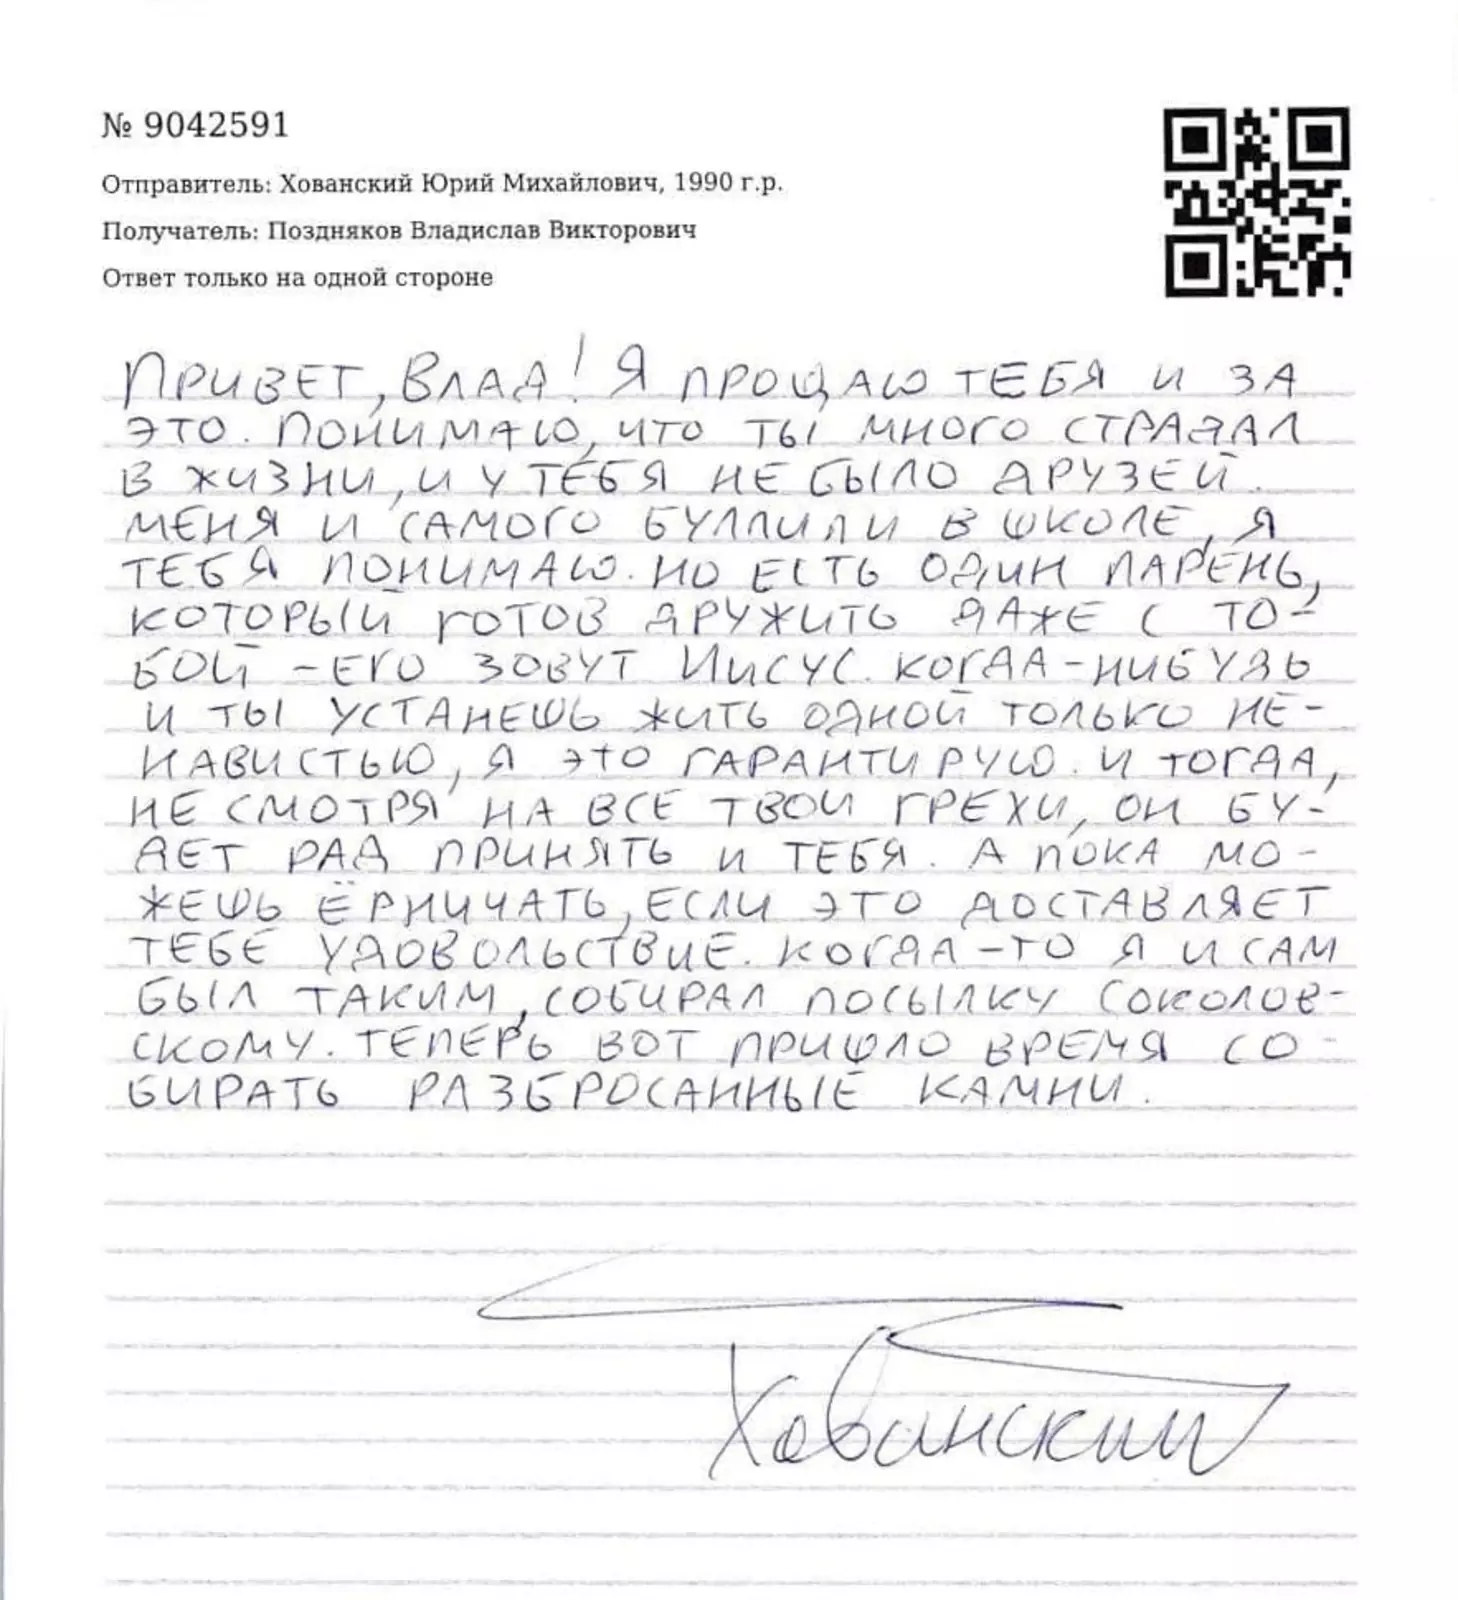 № 9042591
Отправитель: Хованский Юрий Михайлович, 1990 г.р.
Получатель: Поздняков Владислав Викторович
Ответ только на одной стороне
Привет, Влад! Я прощаю тебя и за
это. Понимаю, что ты много страдал
в жизни, и у тебя не было друзей.
Меня и самого буллили в школе, я
тебя понимаю. Но есть один парень,
который готов дружить даже с то-
бой – его зовут Иисус. Когда-нибудь
и ты устанешь жить одной только не-
навистью, я это гарантирую. И тогда,
не смотря на все твои грехи, он бу-
дет рад принять и тебя. А пока мо-
жешь ёрничать, если это доставляет
тебе удовольствие. Когда-то я и сам
был таким, собирал посылку Соколов-
скому. Теперь вот пришло время со-
бирать разбросанные камни.
Хованский